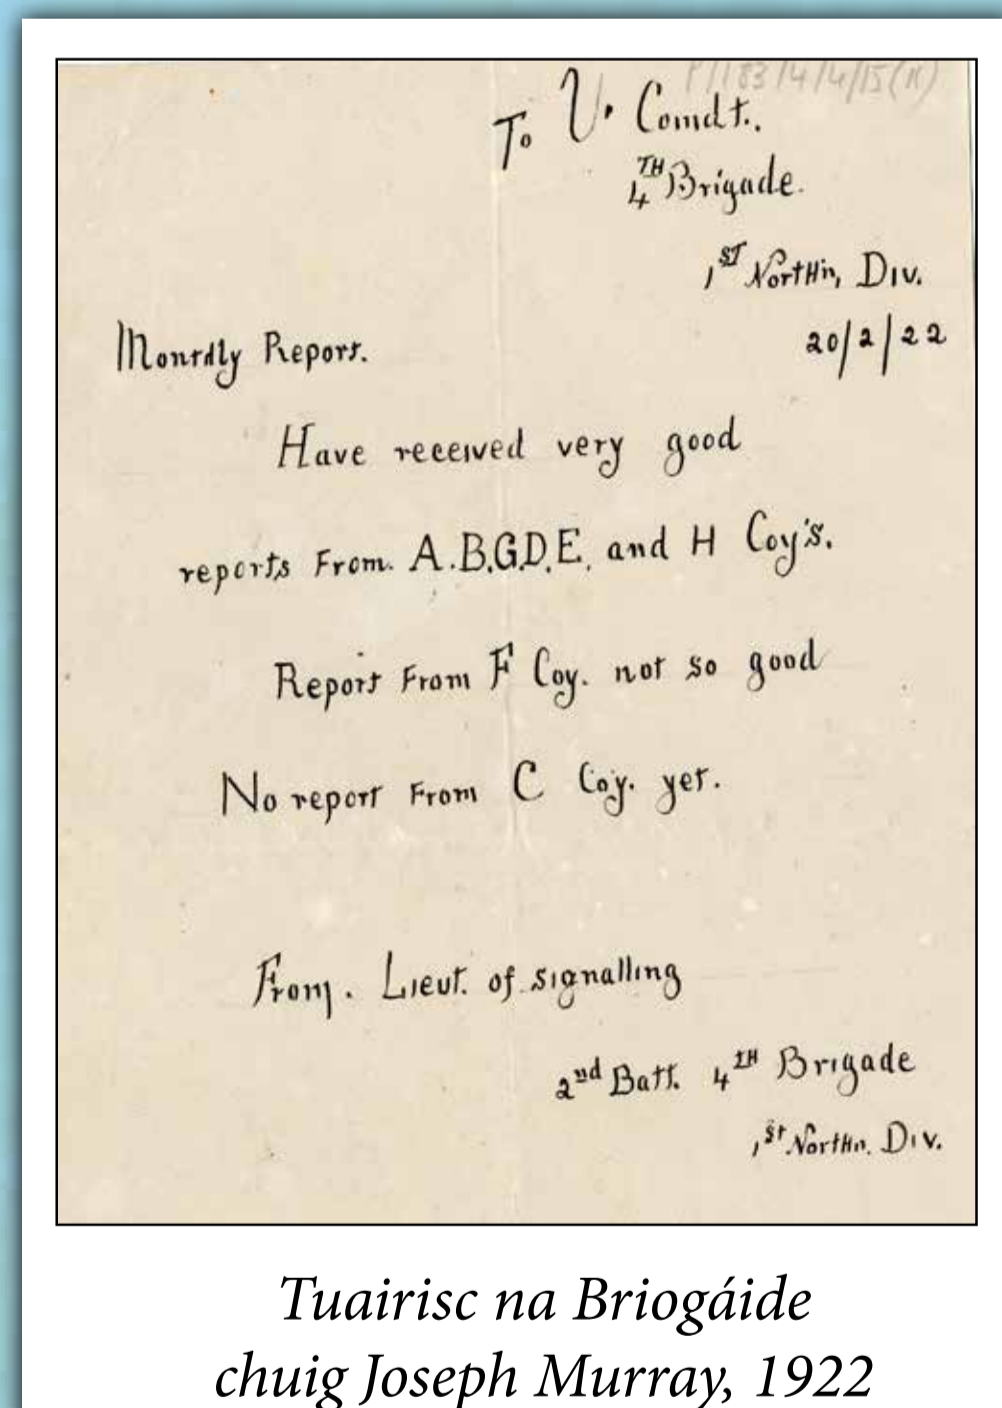 P/183/4/4/15(K)
To V. Comdt.,
4TH Brigade.
1ST Northn, Div.
20/2/22
Montdly Report.
Have received very good
reports From. A.B.G.D.E, and H Coy's.
Report From F Coy. not so good
No report From C Coy. yet.
From. Lieut. of signalling
2nd Batt. 4TH Brigade
1st Northn. Div.
Tuairisc na Briogáide
chuig Joseph Murray, 1922